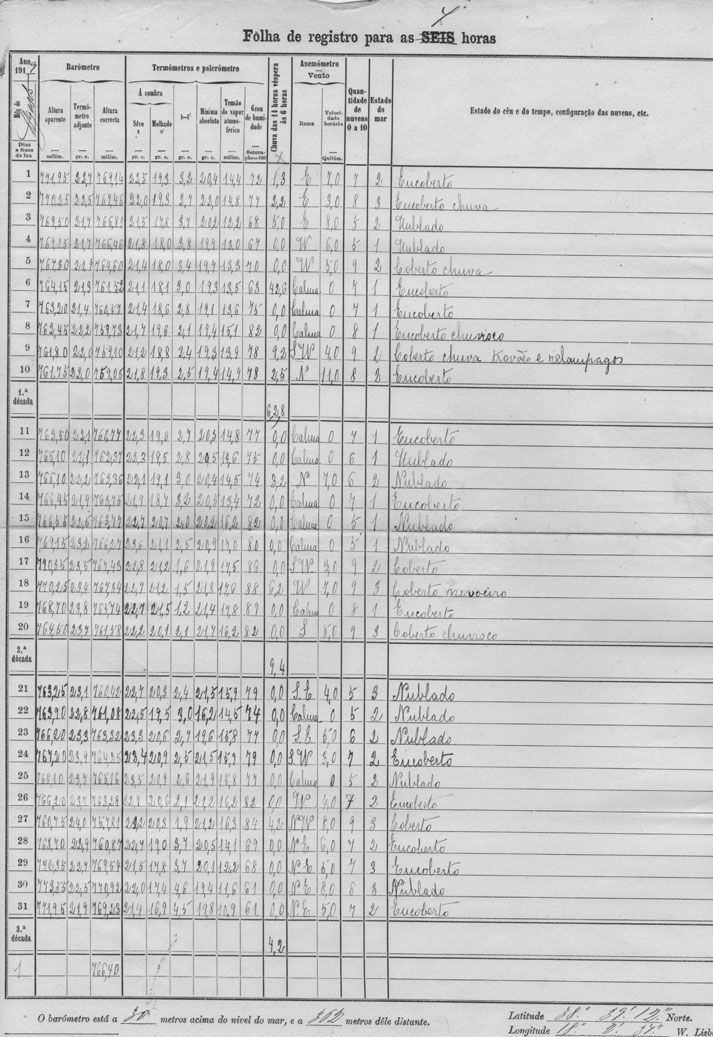 Fôlha de registro para as SEIS horas
7
Ano, 191
Mês de
Dias e fases da lua
Barómetro
Altura aparente
milím.
Termómetro adjunto
gr. c.
Altura correcta
milím.
Termómetros e psicrómetro
Á sombra
Sêco t
gr. c.
Molhado t'
gr. c.
t—t'
gr. c.
Mínima absoluta
gr. c.
Tensão do vapor atmosférico
milím.
Grau de humidade
Saturação=100
Chuva das 14 horas véspera às 6 horas
Anemómetro
Vento
Rumo
Velocidade horária
Quilóm.
Quantidade de nuvens 0 a 10
Estado do mar
Estado do céu e do tempo, configuração das nuvens, etc.
1 771,95 22,7 769,14 22,5 19,3 3,2 20,4 14,4 72 1,3 E 7,0 7 2 Encoberto
2 770,25 22,5 22,0 19,3 2,7 22,0 14,8 77 2,2 E 3,0 8 3 Encoberto chuva
3 769,50 21,7 21,5 17,8 3,7 20,2 12,2 68 5,0 E 8,0 5 2 Nublado
4 769,15 21,7 766,46 21,8 18,0 3,8 19,9 13,0 67 0,0 W 6,0 5 1 Nublado
5 21,9 21,4 18,0 3,4 19,4 13,3 70 0,0 W 5,0 9 2 Coberto chuva
6 764,15 21,3 21,1 18,1 3,0 19,3 13,5 42,6 Calma 0 7 1 Encoberto
7 763,20 21,4 21,4 18,6 2,8 19,1 13,6 75 0,0 Calma 0 7 1 Encoberto
8 762,45 22,2 759,73 21,7 19,6 2,1 19,4 15,1 82 0,0 Calma 0 8 1 Encoberto chuvisco
9 761,80 22,0 759,10 21,2 18,8 2,4 19,3 13,9 78 9,2 SW 4,0 9 2 Coberto chuva trovão e relampagos
10 761,75 22,0 759,05 21,8 19,3 2,5 19,4 14,9 78 2,5 N 11,0 8 3 Encoberto
1.ª década 62,8
11 763,50 22,1 760,77 22,3 19,6 2,7 20,3 14,8 77 0,0 Calma 0 7 1 Encoberto
12 765,10 22,1 762,37 22,3 19,5 2,8 20,5 75 0,0 Calma 0 6 1 Nublado
13 766,10 22,2 763,36 22,1 19,1 3,0 20,4 14,5 74 3,2 N 7,0 6 2 Nublado
14 766,45 21,9 763,75 21,9 18,7 3,2 20,5 13,4 72 0,0 Calma 0 7 1 Encoberto
15 766,55 22,5 763,77 22,7 20,7 2,0 20,2 16,2 82 0,0 Calma 0 5 1 Nublado
16 769,15 23,2 23,6 21,1 2,5 20,9 17,0 80 0,0 Calma 0 5 1 Nublado
17 770,35 23,5 22,8 21,2 1,6 21,9 17,5 86 0,0 SW 3,0 9 2 Coberto
18 770,25 23,4 22,7 21,2 1,5 21,8 17,6 88 6,2 W 7,0 9 3 Coberto nevoeiro
19 768,70 23,8 22,7 21,5 1,2 21,4 17,8 89 0,0 Calma 0 8 1 Encoberto
20 764,50 23,7 761,58 22,2 20,1 2,1 21,7 16,2 82 0,0 S 5,0 9 3 Coberto chuvisco
2.ª década 9,4
21 763,25 23,1 760,42 22,7 20,3 2,4 21,5 15,9 79 0,0 S.E 4,0 5 3 Nublado
22 763,90 22,8 761,08 22,5 19,5 3,0 16,2 14,5 74 0,0 Calma 0 5 2 Nublado
23 766,20 23,3 763,32 23,3 20,6 2,7 19,6 15,8 77 0,0 S.E 5,0 6 2 Nublado
24 767,20 23,9 23,4 20,9 2,5 21,5 79 0,0 S.W 3,0 7 2 Encoberto
25 768,10 23,7 765,16 23,5 20,9 2,6 21,9 15,8 77 0,0 Calma 0 5 2 Nublado
26 766,20 23,7 763,28 20,6 2,1 21,2 16,2 82 0,0 W 4,0 7 2 Encoberto
27 760,75 24,0 757,81 22,2 20,3 1,9 21,2 16,3 84 4,2 N.W 8,0 9 3 Coberto
28 763,70 22,9 760,87 22,7 19,0 3,7 20,5 14,1 69 0,0 N.E 6,0 7 2 Encoberto
29 772,35 22,7 769,54 21,5 17,8 3,7 20,1 12,2 68 0,0 N.E 5,0 7 3 Encoberto
30 22,5 770,92 22,0 17,4 4,6 19,4 11,6 61 0,0 N.E 8,0 6 3 Nublado
31 771,95 21,9 769,23 21,4 16,9 4,5 19,8 10,9 61 0,0 N.E 5,0 7 2 Encoberto
3.ª década 4,2
1 766,40
O barómetro está a 30 metros acima do nível do mar, e a 302 metros dêle distante.
Latitude 38.º 32.º 12.º Norte.
Longitude 18.º W. Lisb